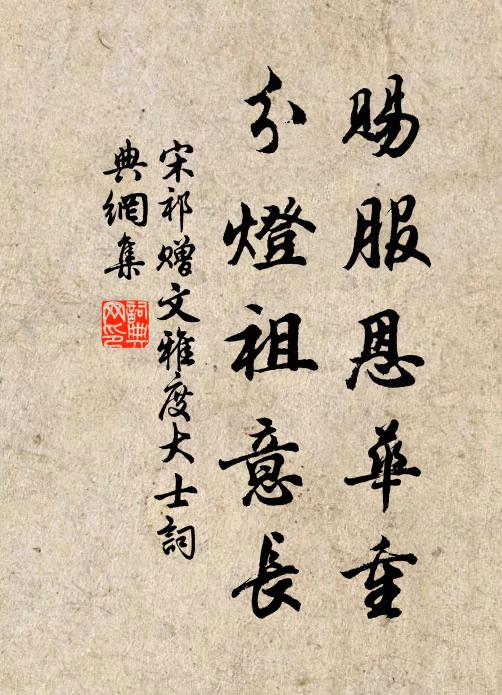 賜服恩華重
分燈祖意長
宋祁贈文雅度大士詞
典網集
詞典
网印